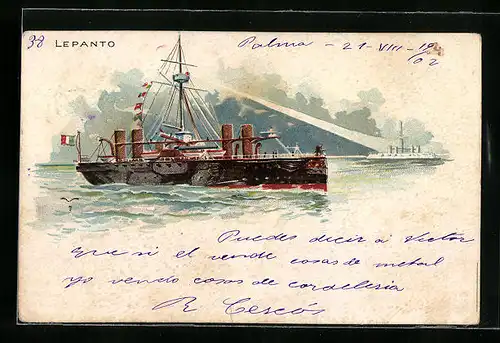 38 LEPANTO
Palma - 21 - VIII - 
02
Puedes decir á Victor
que si el vende cosas de metal
yo vendo cosas de cordeleria
R Cescós